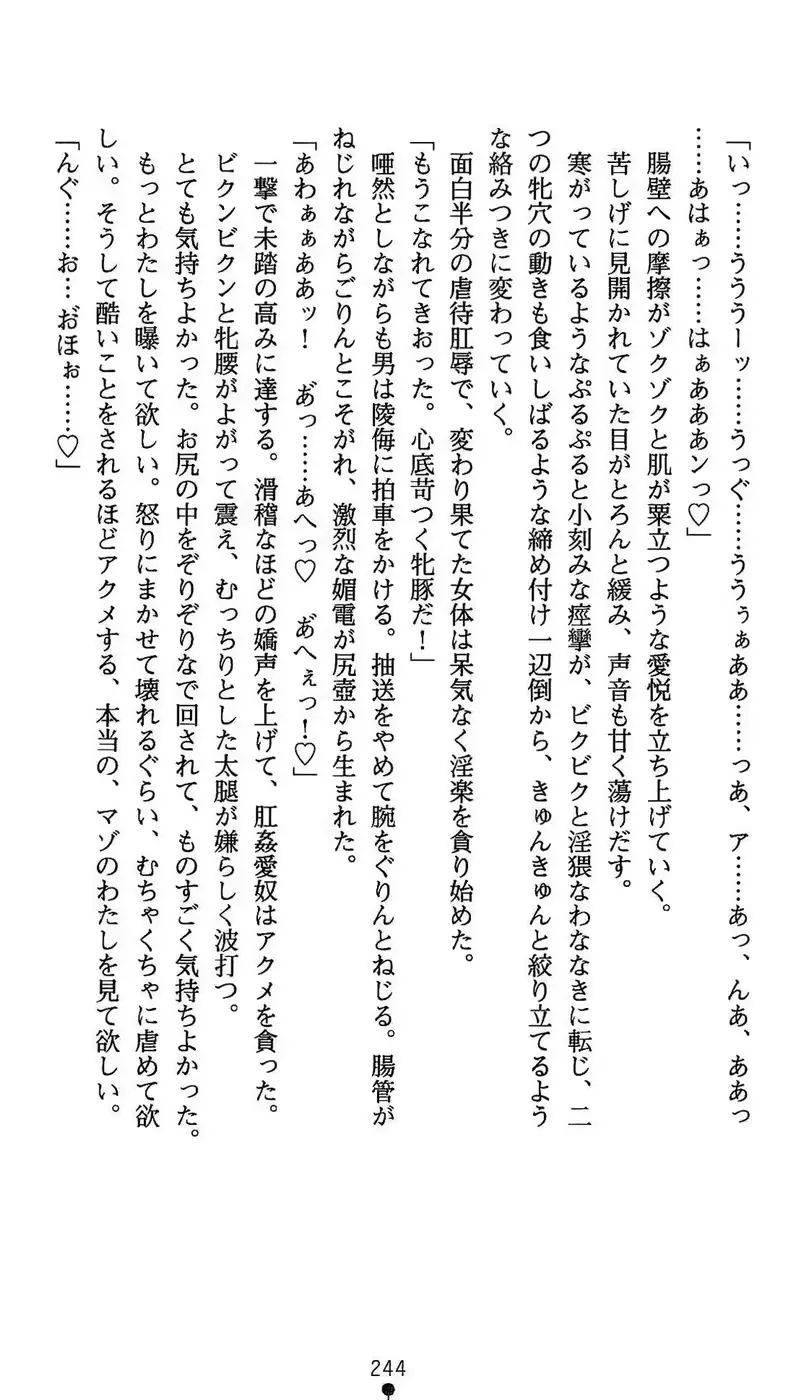 「いっ……うううーッ……うっぐ……ううぅぁああ……っあ、ア……あっ、んあ、ああっ
……あはぁっ……はぁあああンっ♡」
腸壁への摩擦がゾクゾクと肌が粟立つような愛悦を立ち上げていく。
苦しげに見開かれていた目がとろんと緩み、声音も甘く蕩けだす。
寒がっているようなぷるぷると小刻みな痙攣が、ビクビクと淫猥なわななきに転じ、二
つの牝穴の動きも食いしばるような締め付け一辺倒から、きゅんきゅんと絞り立てるよう
な絡みつきに変わっていく。
面白半分の虐待肛辱で、変わり果てた女体は呆気なく淫楽を貪り始めた。
「もうこなれてきおった。心底苛つく牝豚だ!」
唖然としながらも男は陵侮に拍車をかける。抽送をやめて腕をぐりんとねじる。腸管が
ねじれながらごりんとこそがれ、激烈な媚電が尻壺から生まれた。
「あわぁぁああッ! あ゛っ……あへっ♡ あ゛へぇっ!♡」
一撃で未踏の高みに達する。滑稽なほどの嬌声を上げて、肛姦愛奴はアクメを貪った。
ビクンビクンと牝腰がよがって震え、むっちりとした太腿が嫌らしく波打つ。
とても気持ちよかった。お尻の中をぞりぞりなで回されて、ものすごく気持ちよかった。
もっとわたしを曝いて欲しい。怒りにまかせて壊れるぐらい、むちゃくちゃに虐めて欲
しい。そうして酷いことをされるほどアクメする、本当の、マゾのわたしを見て欲しい。
「んぐ……お…お゛ほぉ……♡」
244